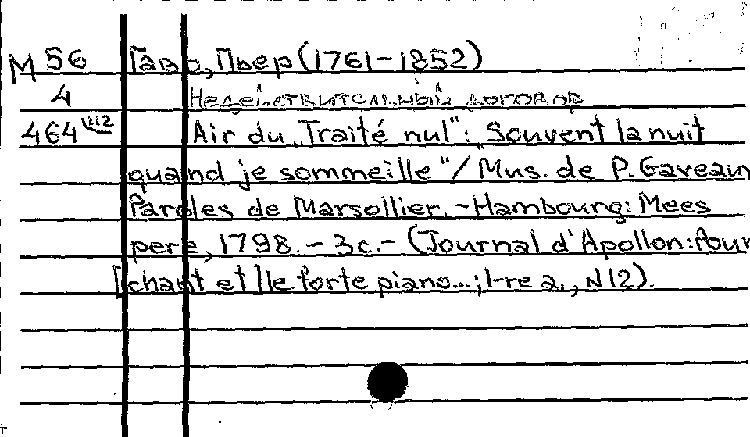 М 56 Гаво, Пьер (1761-1852)
4 Недействительный договор
464 №12 Air du „Traité nul": „Souvent la nuit
quand je sommeille"/ Mus. de P. Gaveaux
Paroles de Marsollier. - Hambourg: Mees
pere, 1798. - 3 с. - (Journal d'Apollon: pour
[chant et] le forte piano...; 1-re a., N12).